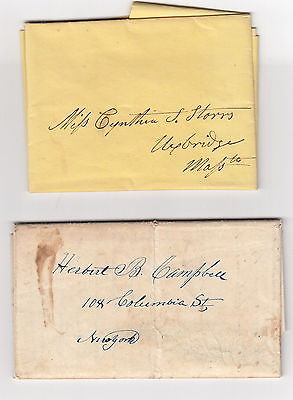 Miss Cynthia S. Storrs
Uxbridge
Mass
Herbert B. Campbell
108 Columbia St,
New York